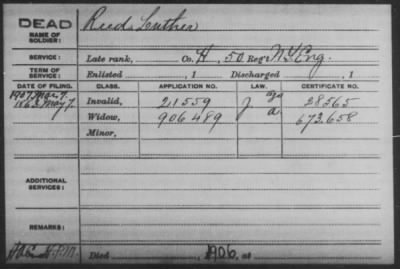 DEAD
NAME OF SOLDIER:
Reed Luther
SERVICE:
Late rank, Co. H, 50 Reg't N.Y. Eng.
TERM OF SERVICE:
Enlisted , 1 Discharged , 1
DATE OF FILING. CLASS. APPLICATION NO. LAW. CERTIFICATE NO.
1863 May 7. Invalid, 21559 38565
1907 Mar. 7. Widow, 906489 673.658
Minor,
ADDITIONAL SERVICES:
REMARKS:
Died 1906, at